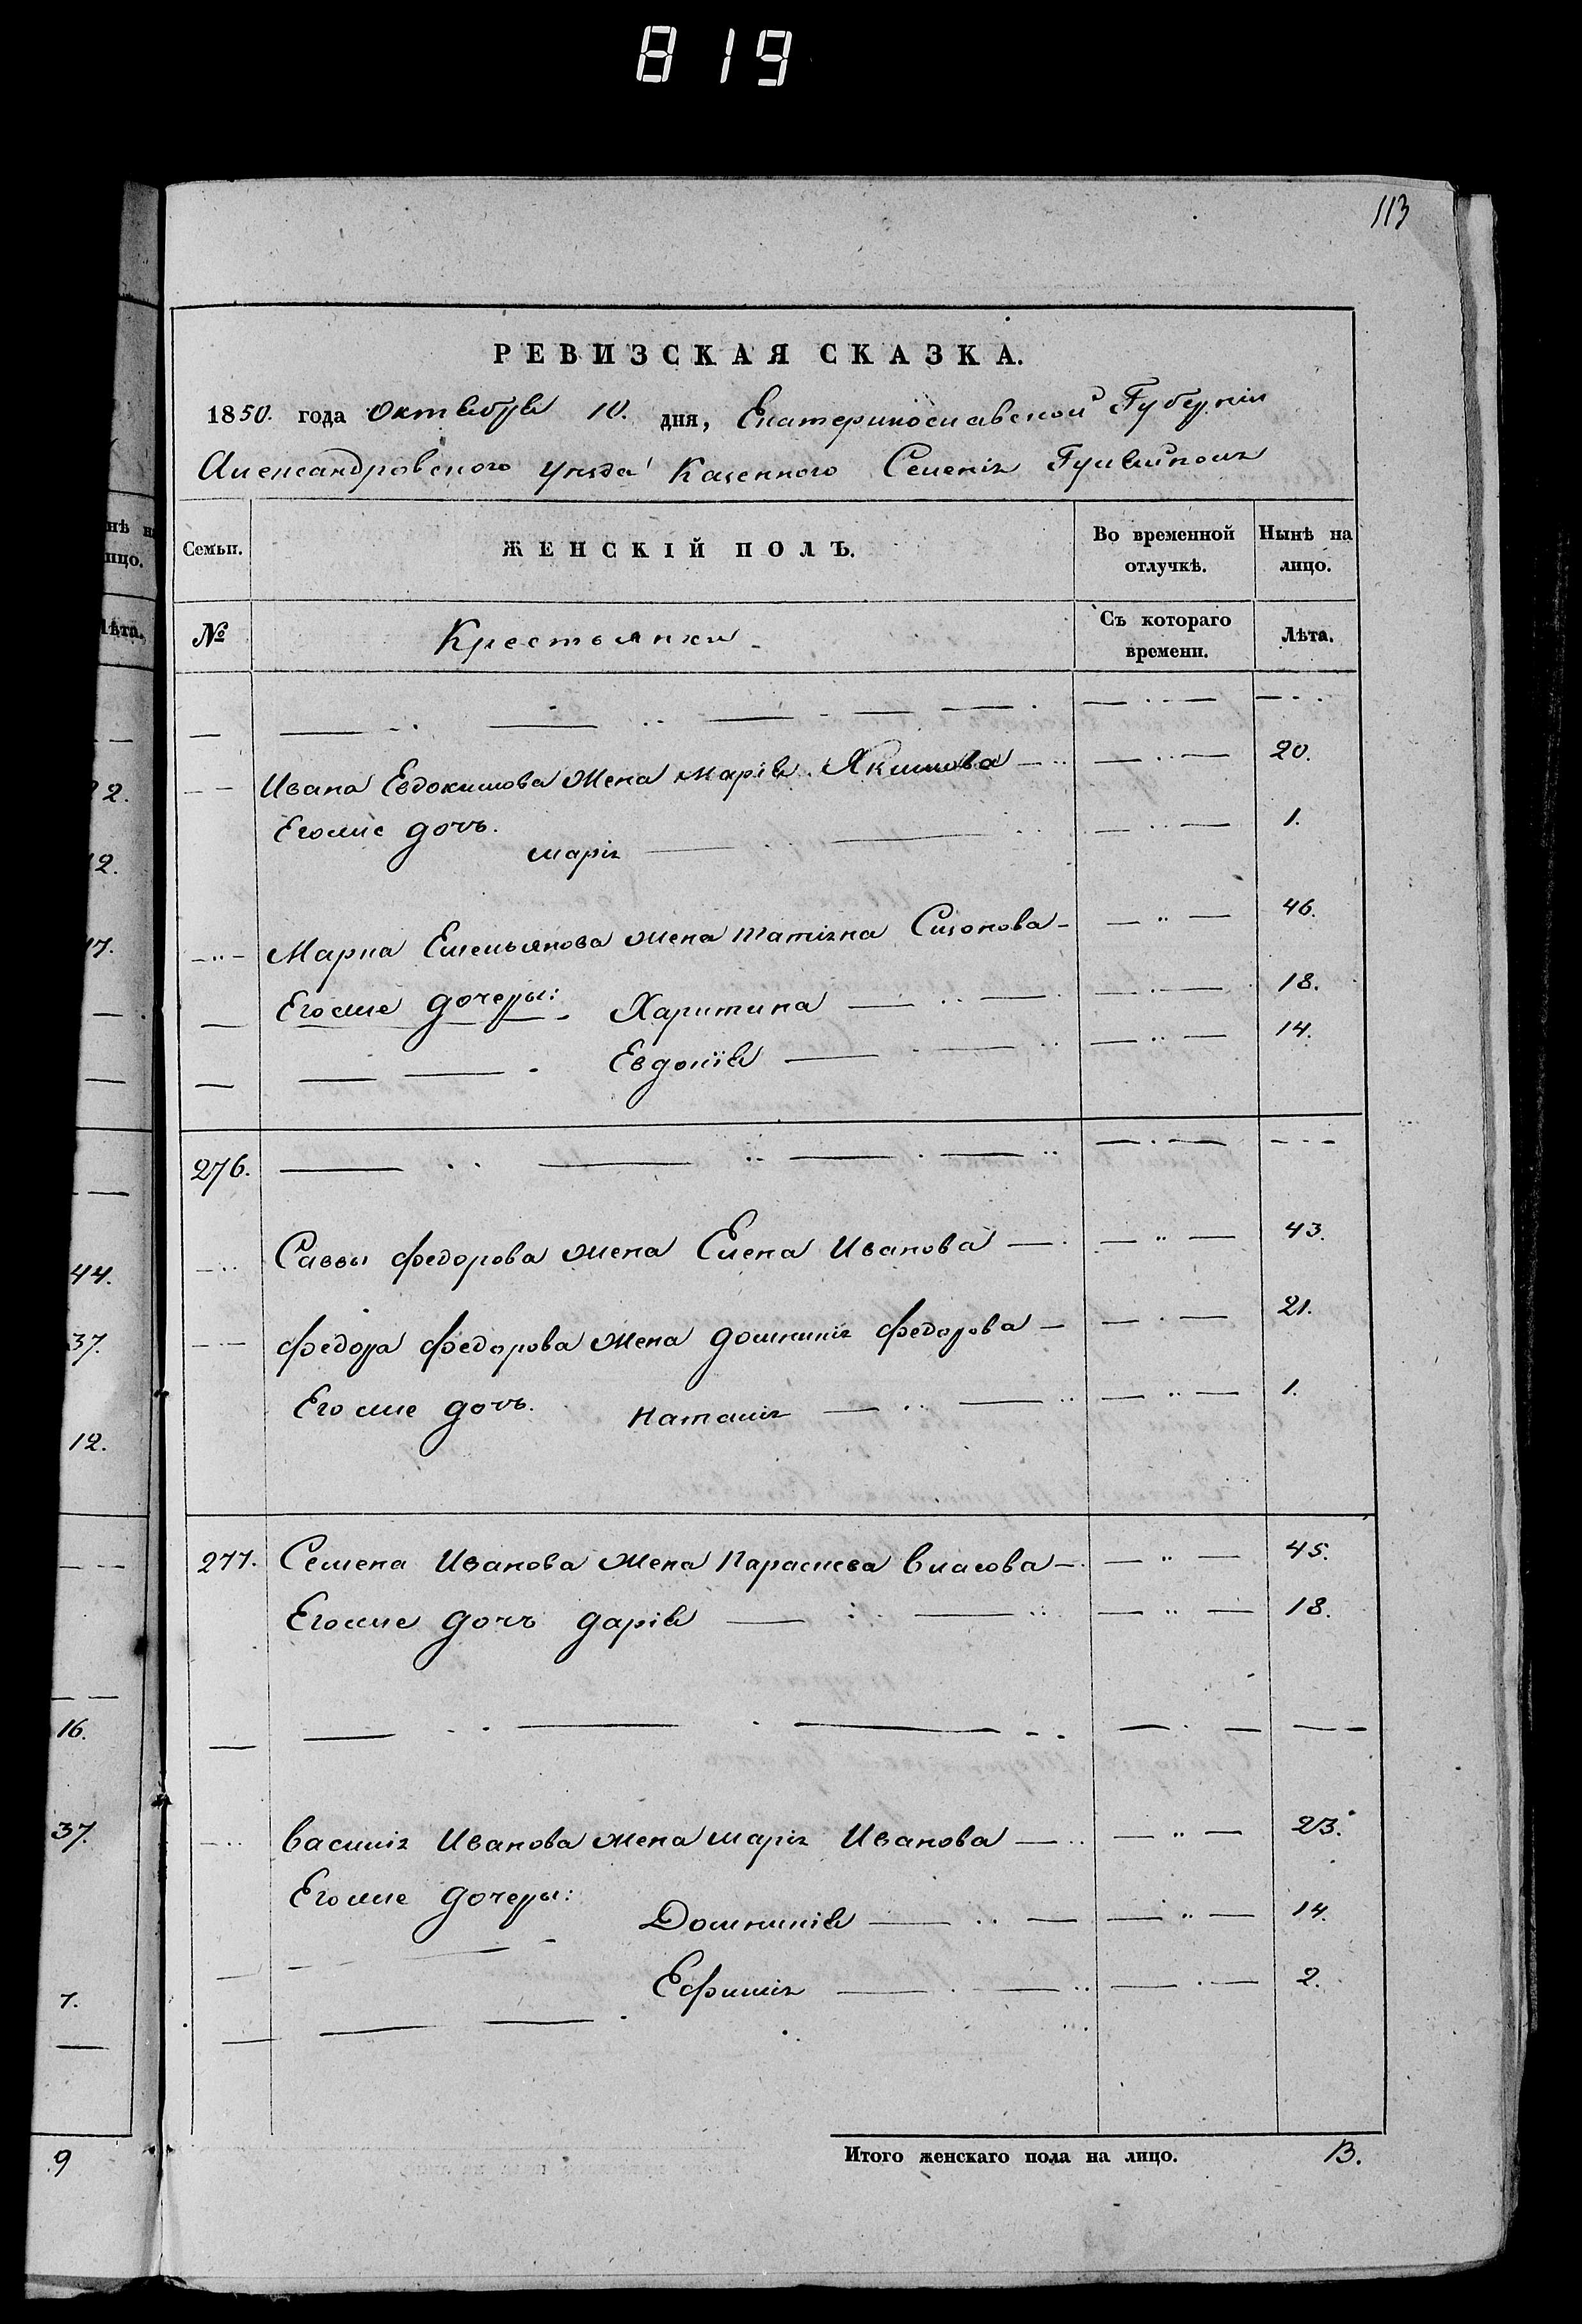 819
113
РЕВИЗСКАЯ СКАЗКА.
1850. года Октября 10. дня, Екатеринославской Губерніи
Александровского уезда Казенного Селенія Гуляйполя
Семьи. ЖЕНСКІЙ ПОЛЪ. Во временной отлучкѣ. Нынѣ на лицо.
№ Крестьянки Съ котораго времени. Лѣта.
Ивана Евдокимова Жена Марія Якимова 20.
Егоже дочь.
марія 1.
Марка Емельянова жена татіяна Сизонова 46.
Егоже дочеры: Харитина 18.
Евдокія 14.
276.
Саввы федорова жена Елена Иванова 43.
федора федорова жена домникія федорова 21.
Егоже дочь. наталія 1.
277. Семена Иванова жена Параскева власова 45.
Егоже дочь дарія 18.
василія Иванова жена марія Иванова 23.
Егоже дочеры:
Домникія 14.
Ефимія 2.
Итого женскаго пола на лицо. 13.
нѣ н
ицо.
Лѣта.
2.
12.
17.
44.
37.
12.
16.
37.
7.
9